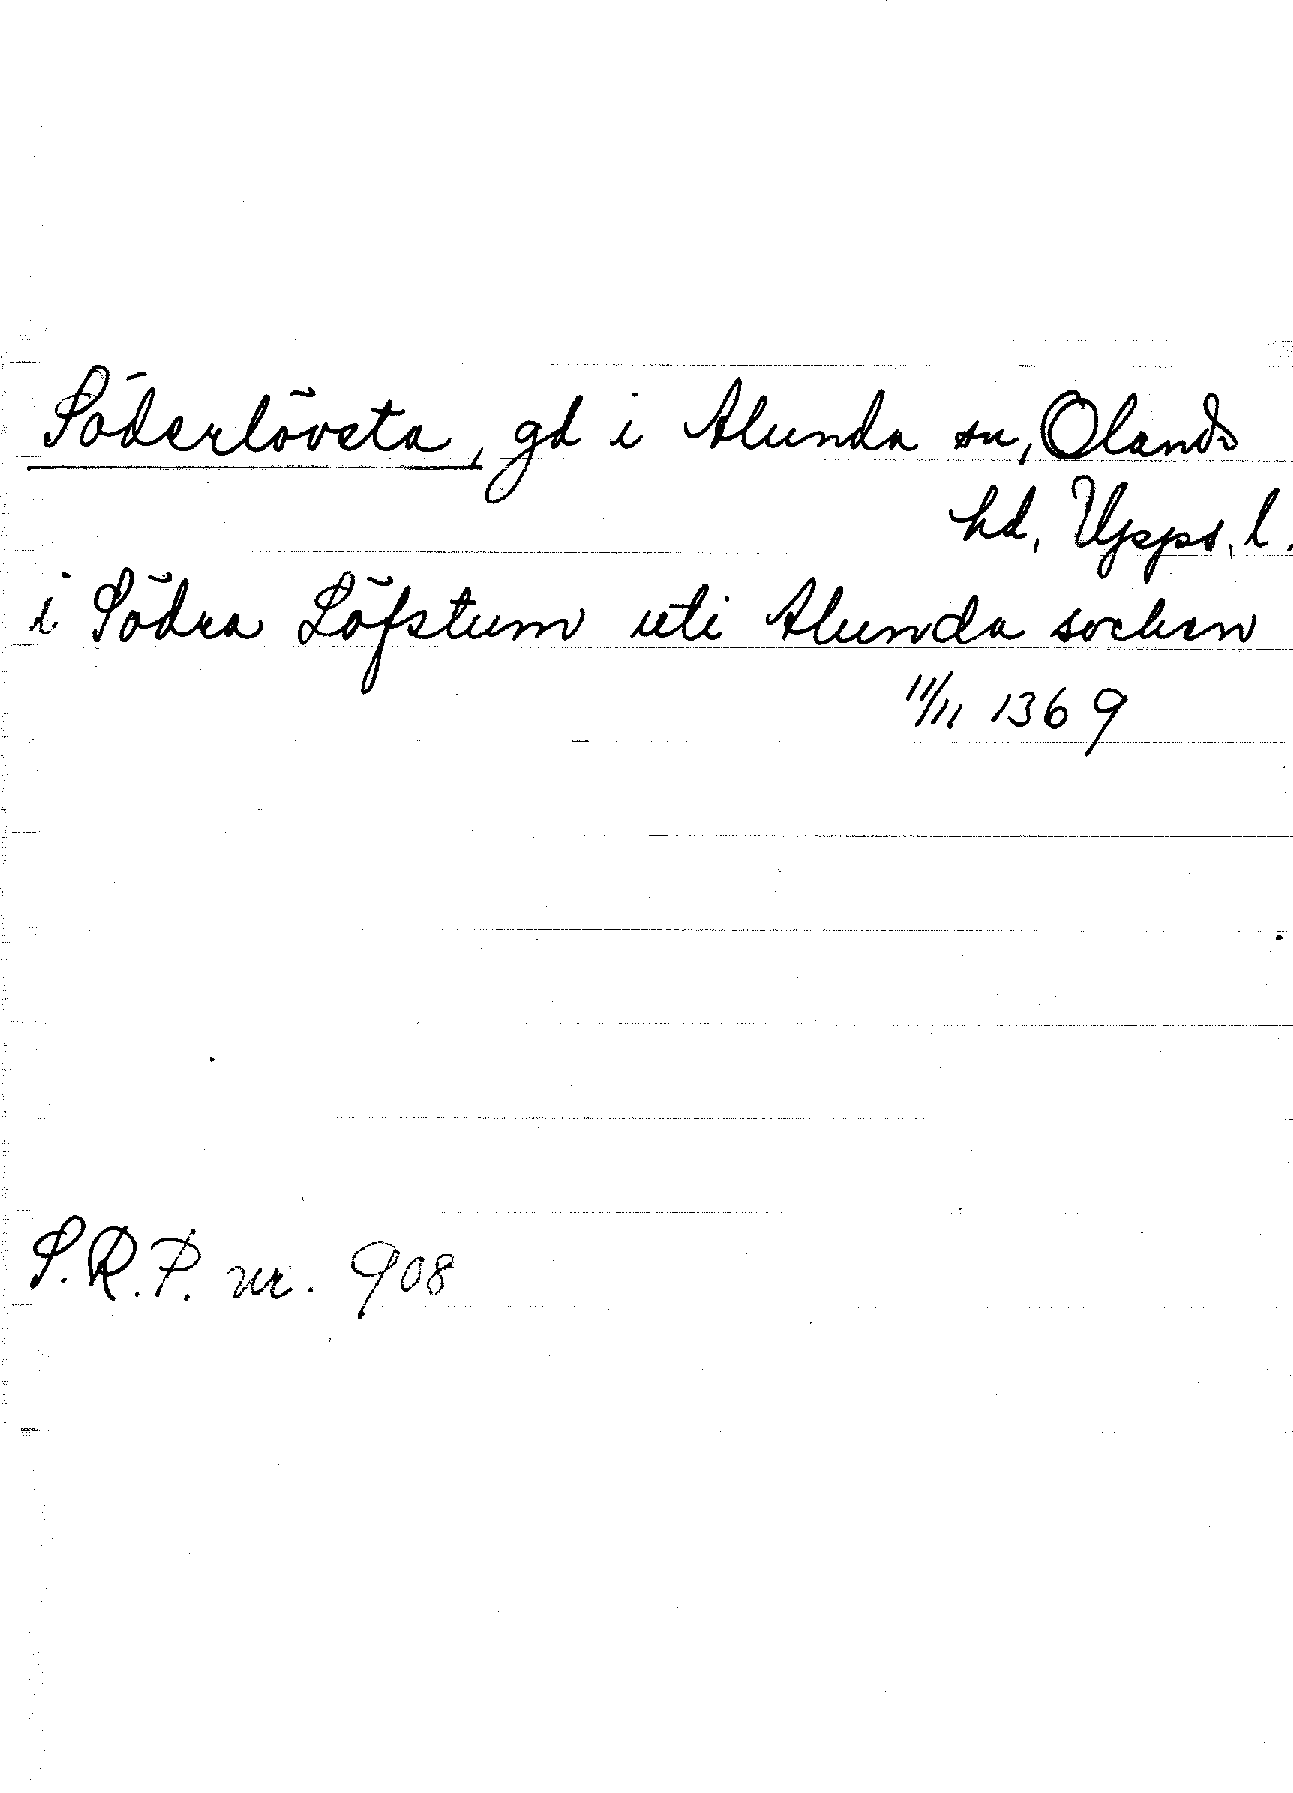 Söderlövsta, gd i Alunda sn, Olands
hd, Upps. l.
i Södra Löfstum uti Alunda socken
11/11 1369
S.R.P. nr. 908